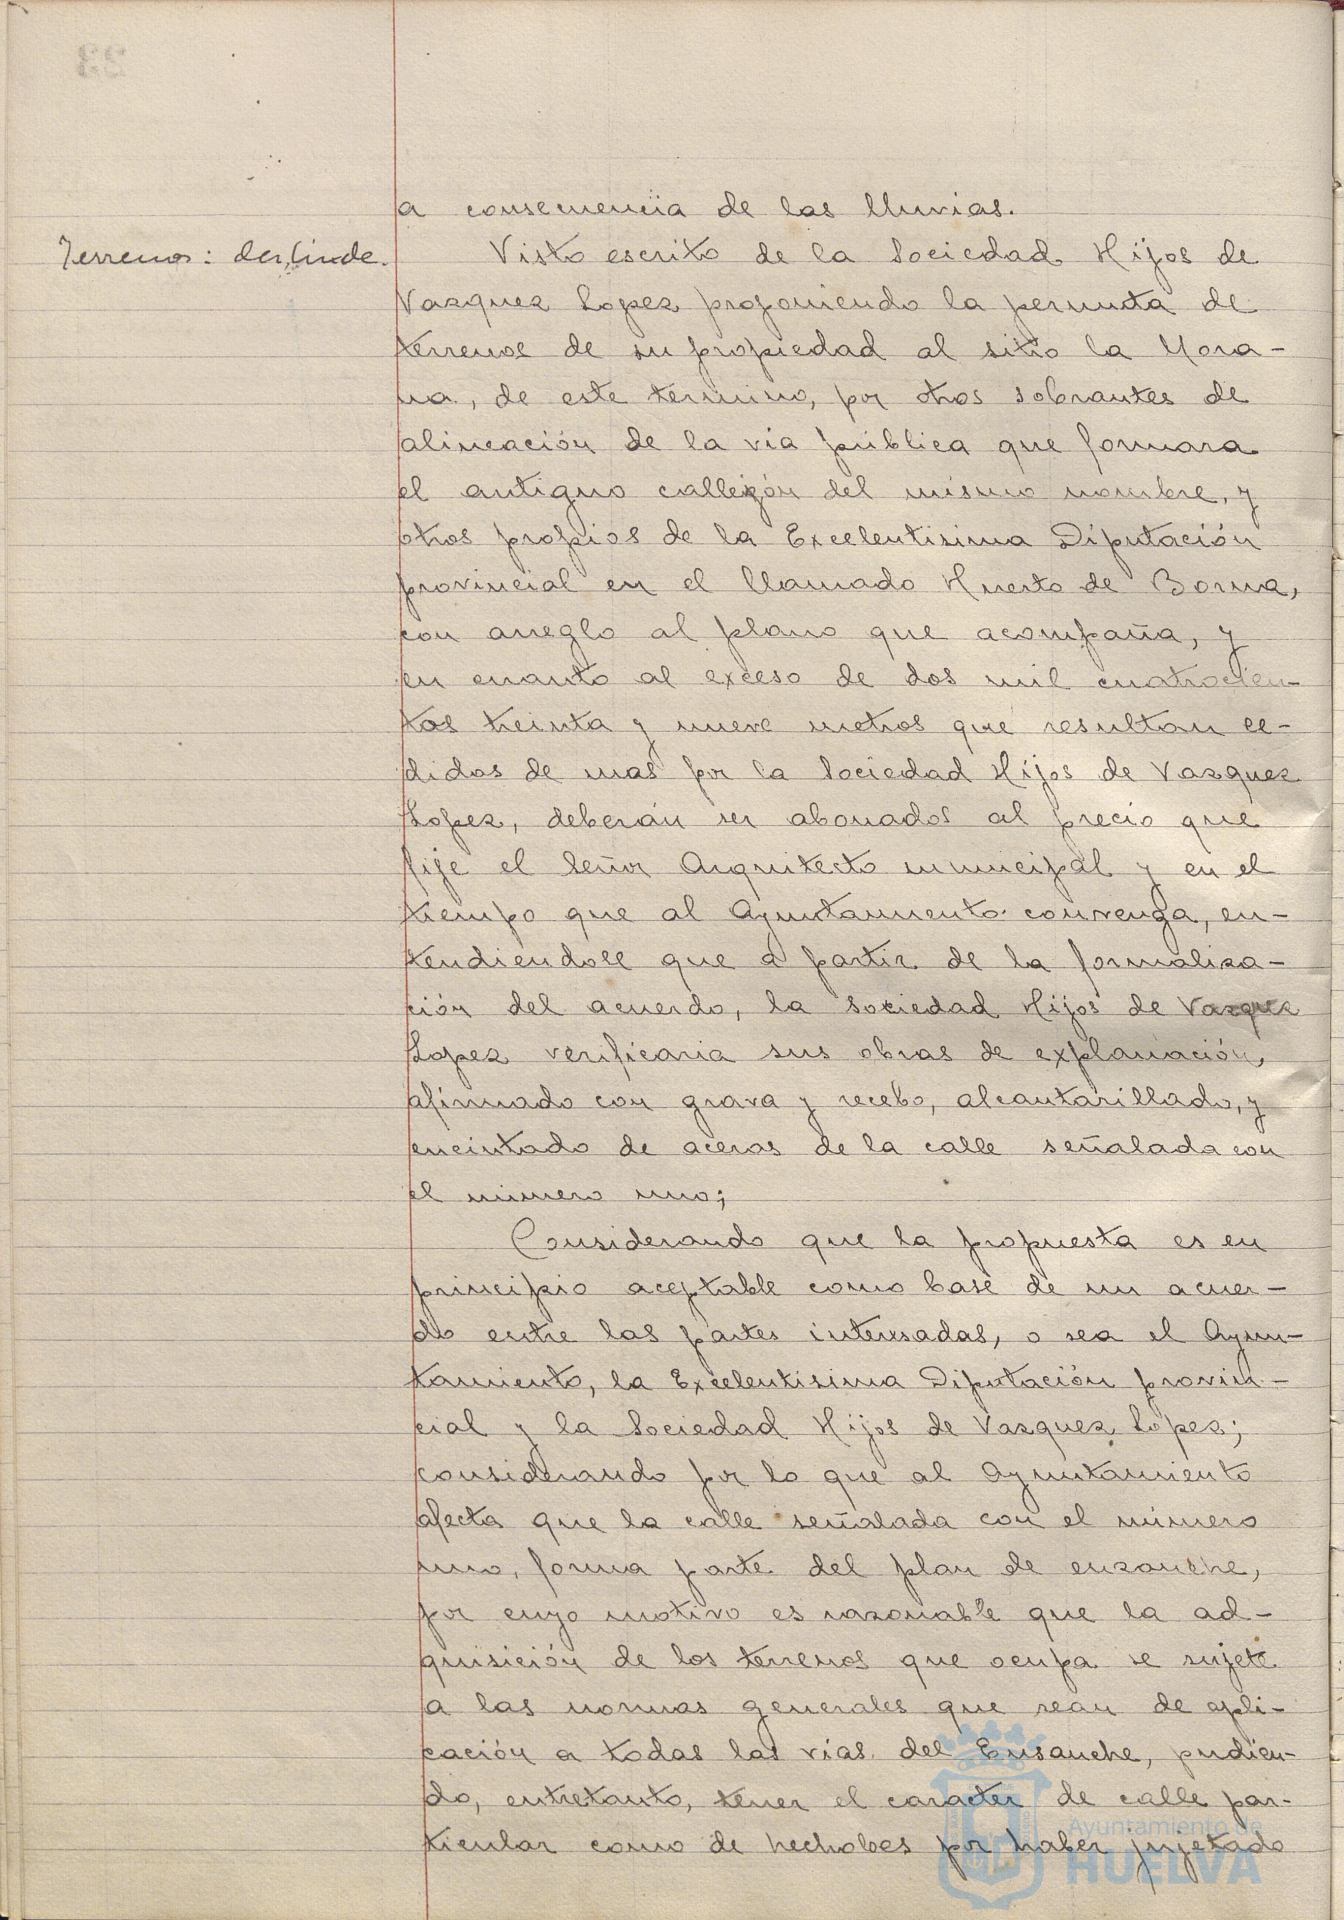 a consecuencia de las lluvias.
Terrenos: deslinde.
Visto escrito de la Sociedad Hijos de
Vazquez Lopez proponiendo la permuta de
terrenos de su propiedad al sitio la Mora-
na, de este término, por otros sobrantes de
alineación de la via pública que formara
el antiguo callejón del mismo nombre, y
otros propios de la Excelentisima Diputación
provincial en el llamado Huerto de Borma,
con arreglo al plano que acompaña, y
en cuanto al exceso de dos mil cuatrocien-
tos treinta y nueve metros que resultan ce-
didos de mas por la Sociedad Hijos de Vazquez
Lopez, deberán ser abonados al precio que
fije el Señor Arquitecto municipal y en el
tiempo que al Ayuntamiento convenga, en-
tendiendose que a partir de la formaliza-
ción del acuerdo, la Sociedad Hijos de Vazquez
Lopez verificaria sus obras de explanación,
afirmado con grava y recebo, alcantarillado, y
encintado de aceras de la calle señalada con
el número uno;
Considerando que la propuesta es en
principio aceptable como base de un acuer-
do entre las partes interesadas, o sea el Ayun-
tamiento, la Excelentisima Diputación provin-
cial y la Sociedad Hijos de Vazquez Lopez;
considerando por lo que al Ayuntamiento
afecta que la calle señalada con el número
uno, forma parte del plan de ensanche,
por cuyo motivo es razonable que la ad-
quisición de los terrenos que ocupa se sujete
a las normas generales que sean de apli-
cación a todas las vías del Ensanche, pudien-
do, entretanto, tener el caracter de calle par-
ticular como de hecho lo es por haber sujetado
Ayuntamiento de
HUELVA
23